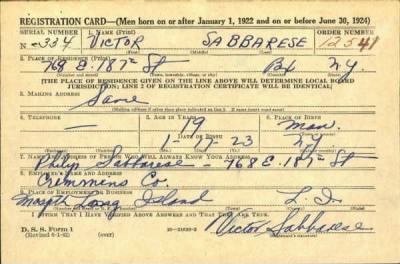 REGISTRATION CARD—(Men born on or after January 1, 1922 and on or before June 30, 1924)
SERIAL NUMBER 1. NAME (Print) ORDER NUMBER
N-334 VICTOR SABBARESE 12541
2. PLACE OF RESIDENCE (Print)
768 E. 187th St Bx NY.
(Number and street) (Town, township, village, or city) (County) (State)
[THE PLACE OF RESIDENCE GIVEN ON THE LINE ABOVE WILL DETERMINE LOCAL BOARD
JURISDICTION; LINE 2 OF REGISTRATION CERTIFICATE WILL BE IDENTICAL]
3. MAILING ADDRESS
Same
[Mailing address if other than place indicated on line 2. If same insert word same]
4. TELEPHONE 5. AGE IN YEARS 6. PLACE OF BIRTH
— 19 Man.
DATE OF BIRTH
23 NY
7. NAME AND ADDRESS OF PERSON WHO WILL ALWAYS KNOW YOUR ADDRESS
Philip Sabbarese - 768 E. 187th St
8. EMPLOYER'S NAME AND ADDRESS
Co.
9. PLACE OF EMPLOYMENT OR BUSINESS
Long Island L. I.
I AFFIRM THAT I HAVE VERIFIED ABOVE ANSWERS AND THAT THEY ARE TRUE.
D. S. S. Form 1
(Revised 6-1-42) (over)
Victor Sabbarese